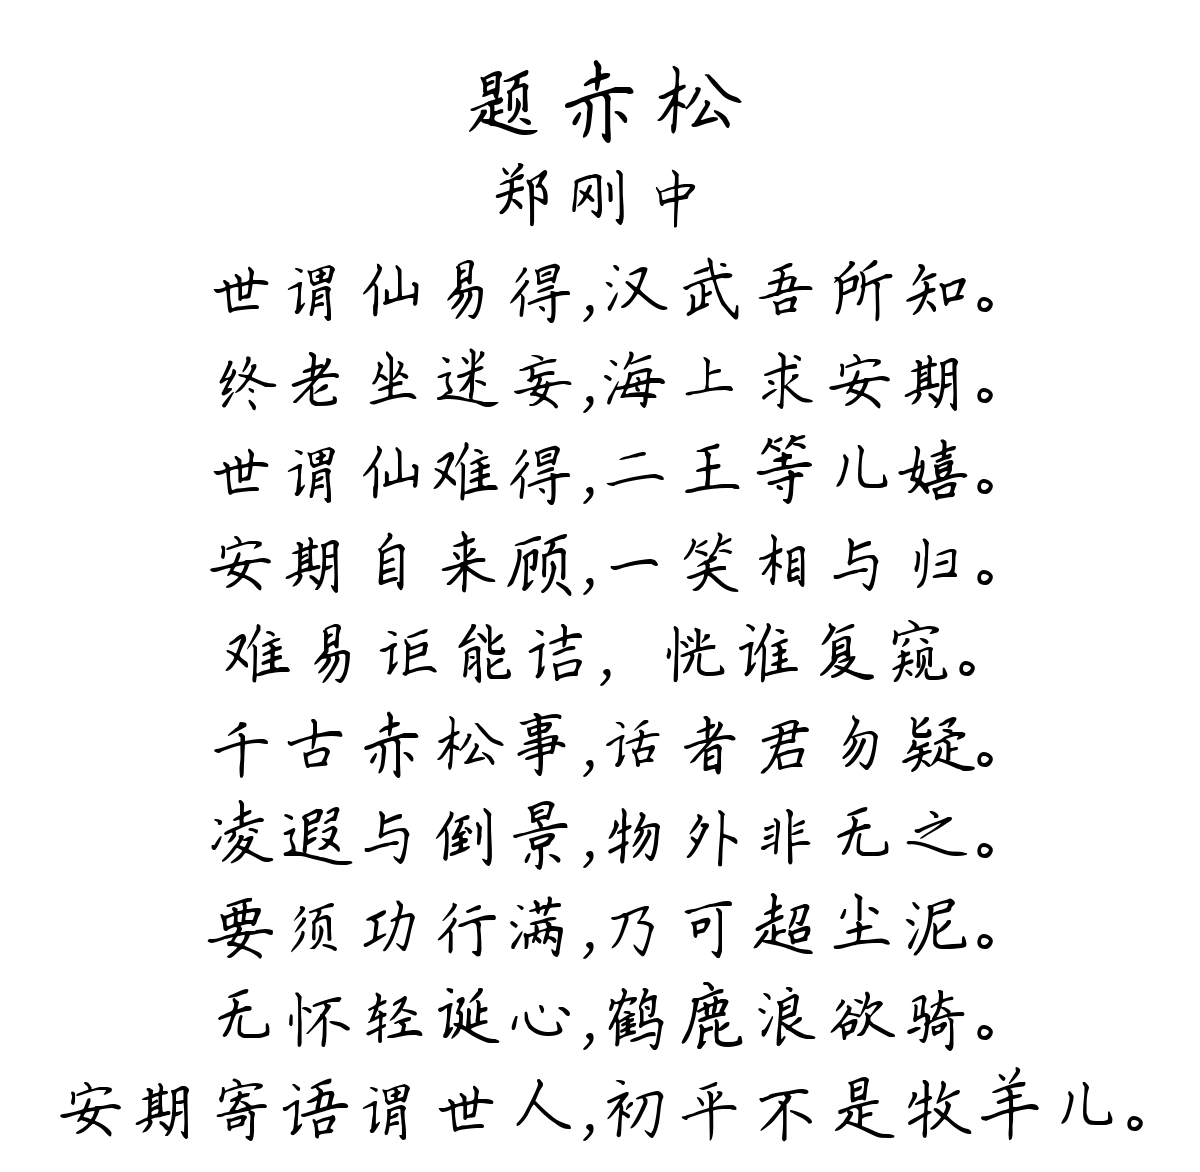 题赤松
郑刚中
世谓仙易得,汉武吾所知。
终老坐迷妄,海上求安期。
世谓仙难得,二王等儿嬉。
安期自来顾,一笑相与归。
难易讵能诘，恍谁复窥。
千古赤松事,话者君勿疑。
凌遐与倒景,物外非无之。
要须功行满,乃可超尘泥。
无怀轻诞心,鹤鹿浪欲骑。
安期寄语谓世人,初平不是牧羊儿。